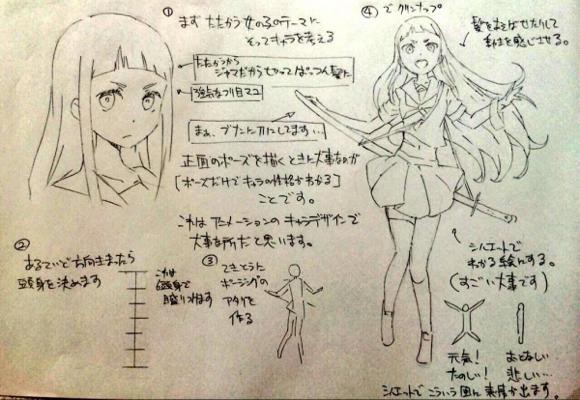 ① まず たたかう女の子のテーマに
そってキャラを考える
たたかうから
ジャマだから切ってぱっつん髪に
強気なつり目マユ
まぁ、ブナンに刀にしてます…
正面のポーズを描くときに大事なのが
[ポーズだけでキャラの性格がわかる]
ことです。
これはアニメーションのキャラデザインで
大事な所だと思います。
② あるていど方向きまったら
頭身を決めます
これは
6頭身で
③ てきとうに
ポージングの
アタリを
作る
④ でクリンナップ
髪をなびかせたりして
シルエットで
わかる絵にする。
(すごい大事です)
元気!
たのしい!
おとなしい
悲しい…
シルエットで こういう風に 表情が出ます。